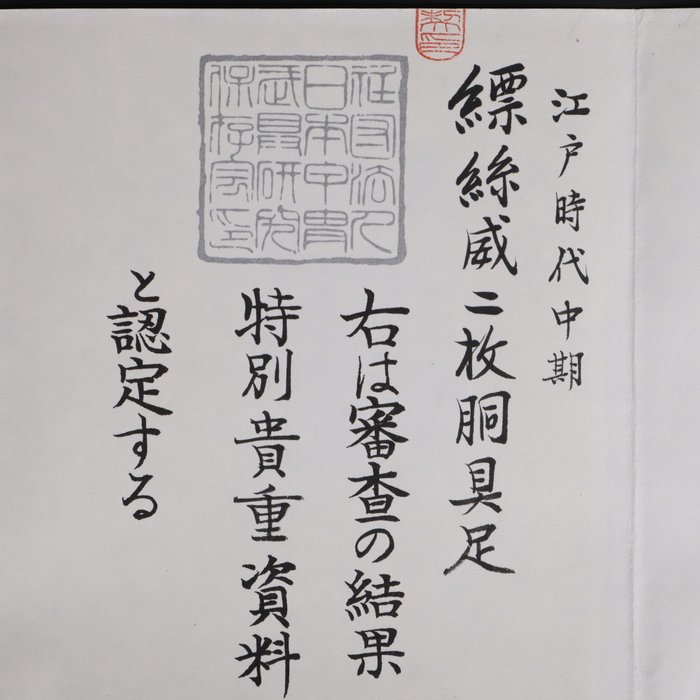 江戸時代中期
縹絲威二枚胴具足
右は審査の結果
特別貴重資料
と認定する
社団法人
日本甲冑
武具研究
保存会印